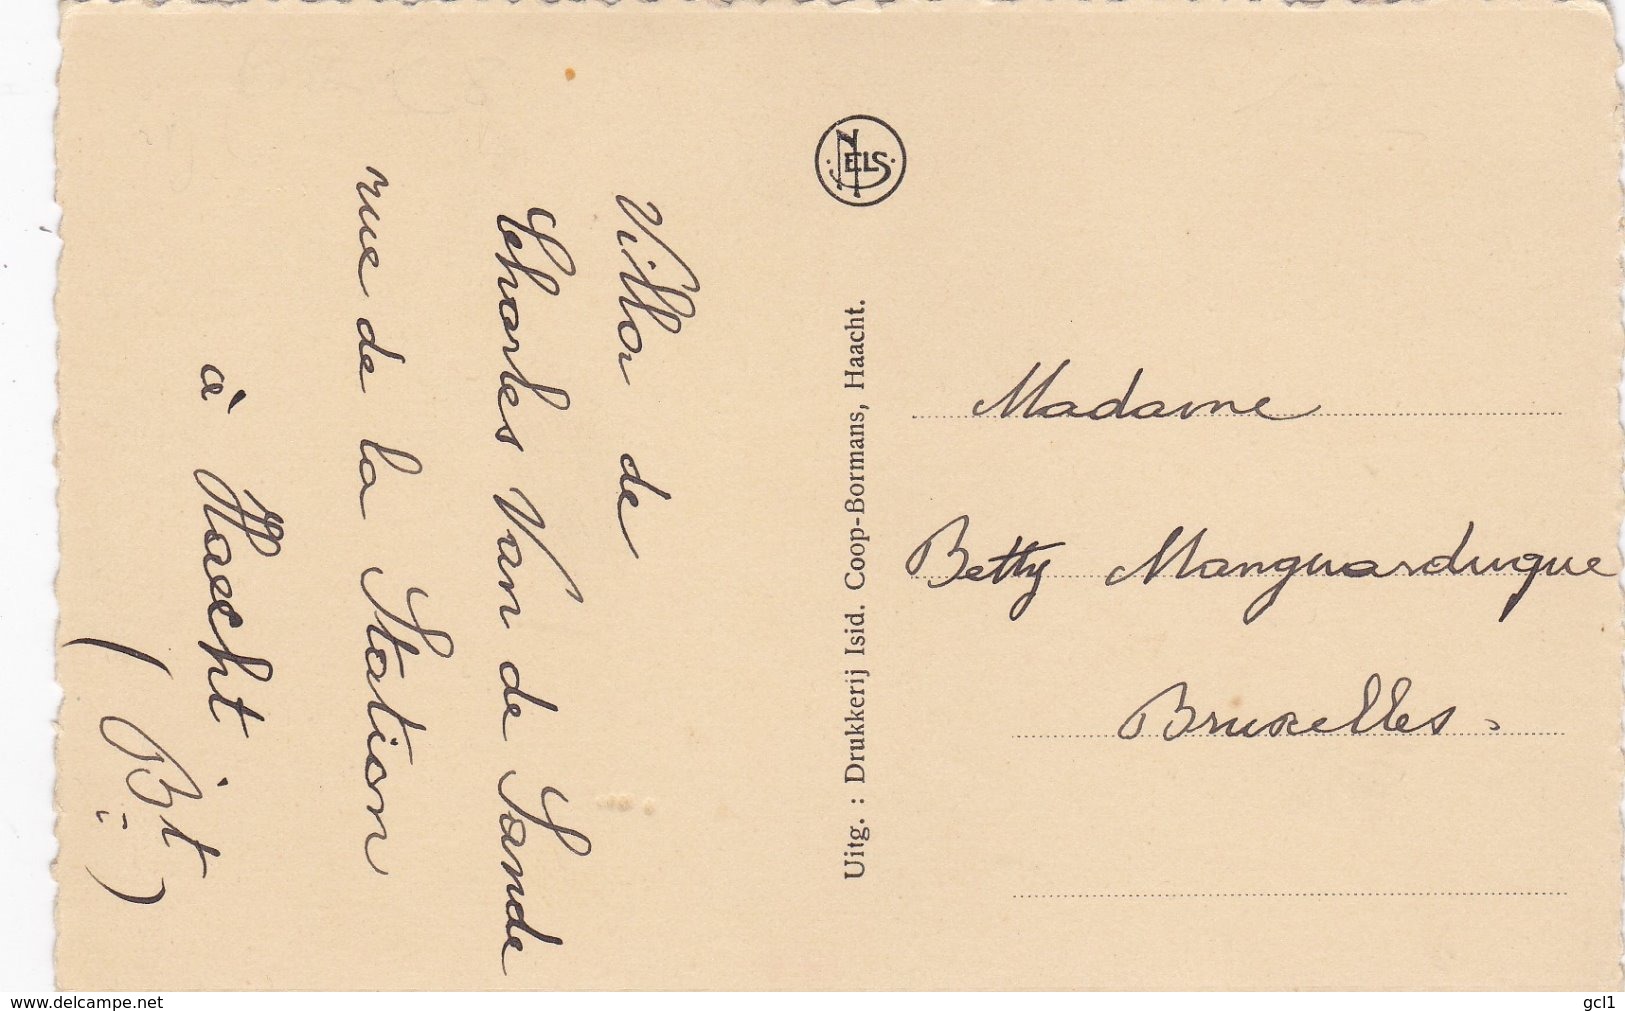 Villa de
Charles Van de Sande
rue de la Station
à Haecht
(Bt)
NELS
Uitg. : Drukkerij Isid. Coop-Bormans, Haacht.
Madame
Betty Manguarduque
Bruxelles
www.delcampe.net
gcl1